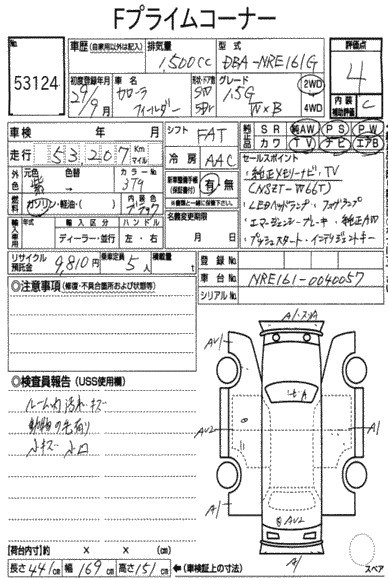 Fプライムコーナー
No.
53124
車歴 (自家用以外は記入) 排気量 1,500cc 型式 DBA-NRE161G
初度登録年月 29年 9月 車名 カローラ フィールダー
ドア・形状 SW 5D グレード 1.5G W×B 2WD 4WD
評価点 4
内装 補助評価 C
車検 年 月 シフト FAT
純正品 SR 純AW PS PW
カワ TV ナビ エアB
走行 53,207 Km マイル 冷房 AAC
外色 元色 紫 色替 カラーNo. 379
燃料 ガソリン・軽油・( ) 内装色 ブラック
新車整備手帳 (保証書付) 有・無
セールスポイント
・純正メモリーナビ・TV
(NSZT-W66T)
・LEDヘッドランプ・フォグランプ
・エマージェンシーブレーキ・純正AW
・プッシュスタート・インテリジェントキー
輸入車用 年式 輸入区分 ハンドル
ディーラー・並行 左・右
名義変更期限 月 日
リサイクル預託金 9,810円 乗車定員 5人 積載量 t
登録No.
車台No. NRE161-0040057
シリアルNo.
◎注意事項 (修復・不具合箇所および状態等)
◎検査員報告 (USS使用欄)
ルーム内汚れ・キズ
動物の毛有り
小キズ 小凹
A1
AV1
AV1
AV2
A1
A1
AV2
A1
[荷台内寸] 長さ × 巾 × 高さ (cm)
長さ 441cm 幅 169cm 高さ 151cm ←(車検証上の寸法)
スペア